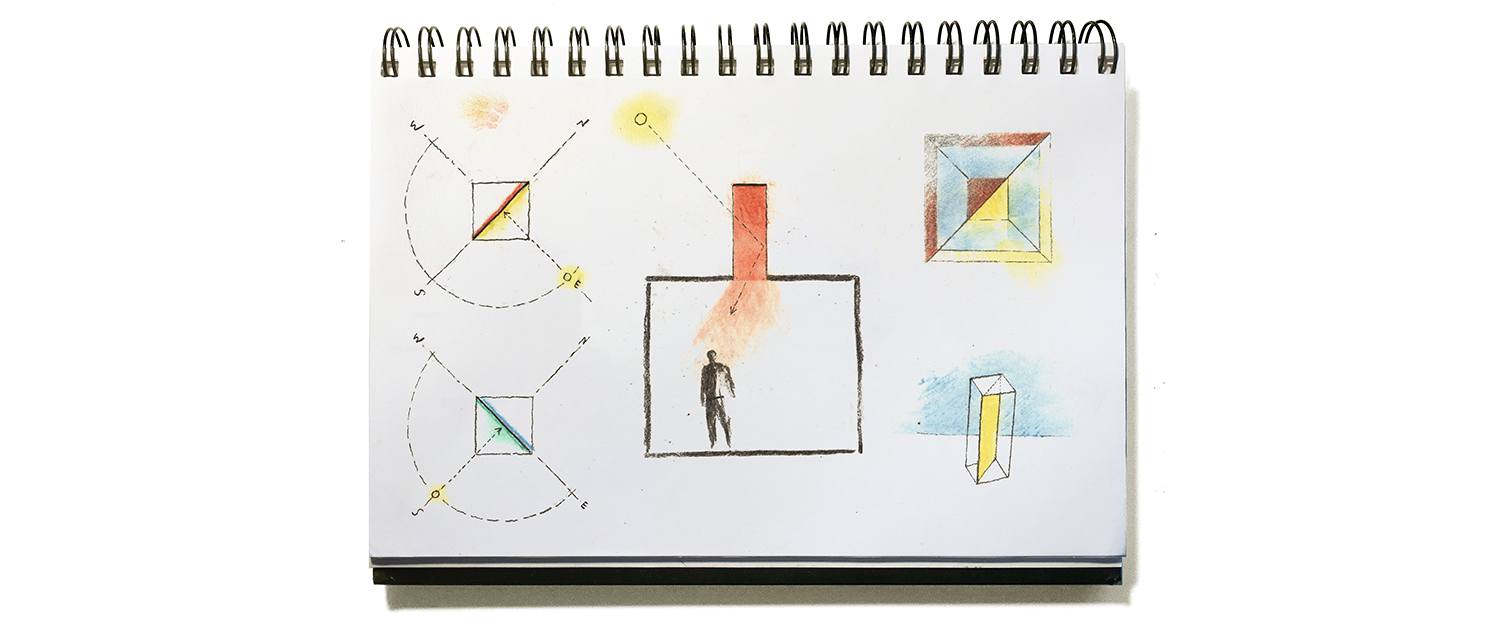 W N
S E
W N
S E